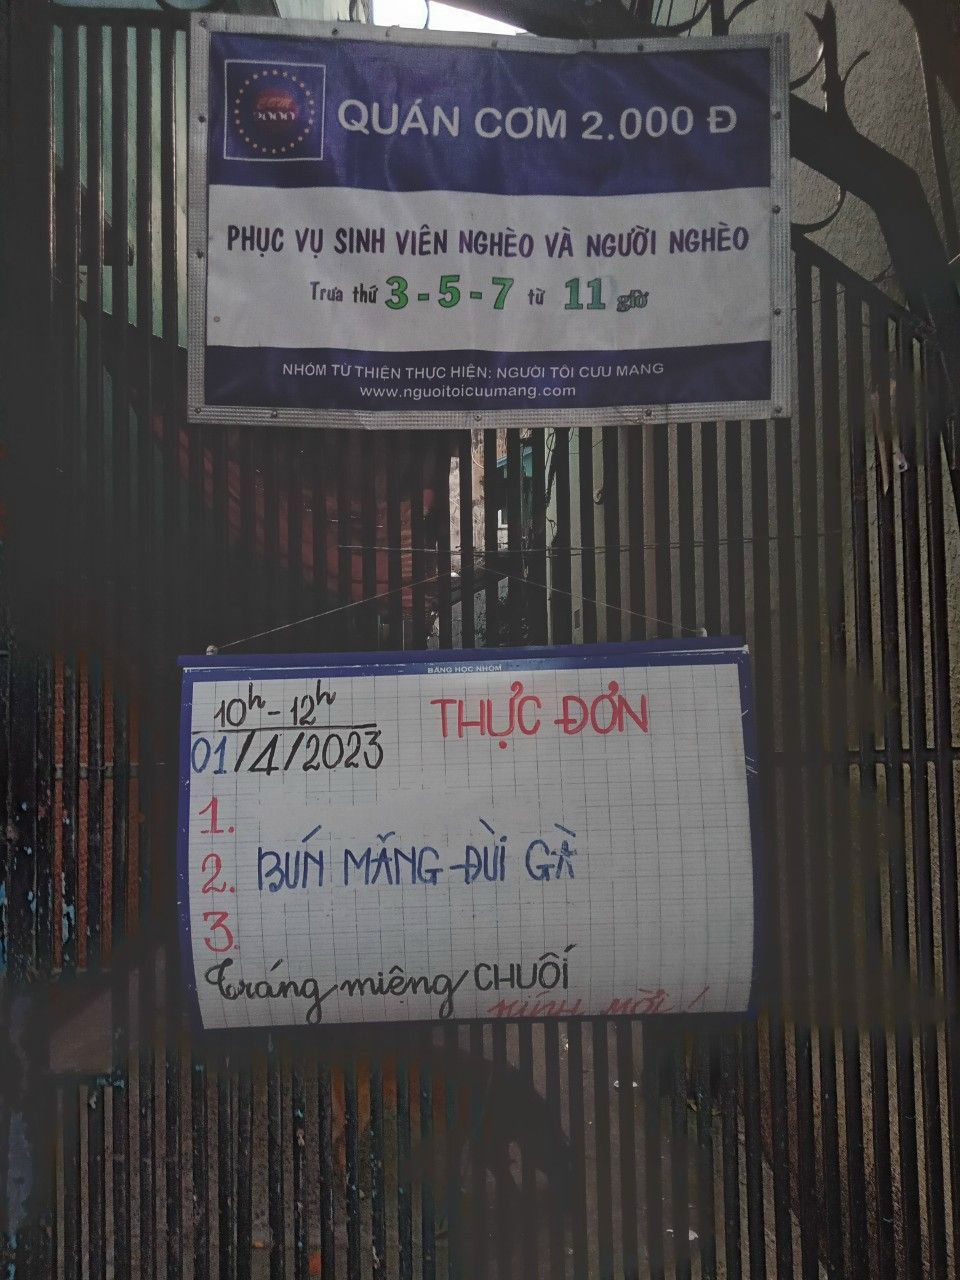 CƠM
2000
QUÁN CƠM 2.000 Đ
PHỤC VỤ SINH VIÊN NGHÈO VÀ NGƯỜI NGHÈO
Trưa thứ 3 - 5 - 7 từ 11 giờ
NHÓM TỪ THIỆN THỰC HIỆN: NGƯỜI TÔI CƯU MANG
www.nguoitoicuumang.com
BẢNG HỌC NHÓM
10h - 12h
THỰC ĐƠN
01/4/2023
1.
2. BÚN MĂNG ĐÙI GÀ
3.
Tráng miệng CHUỐI
KÍNH MỜI !